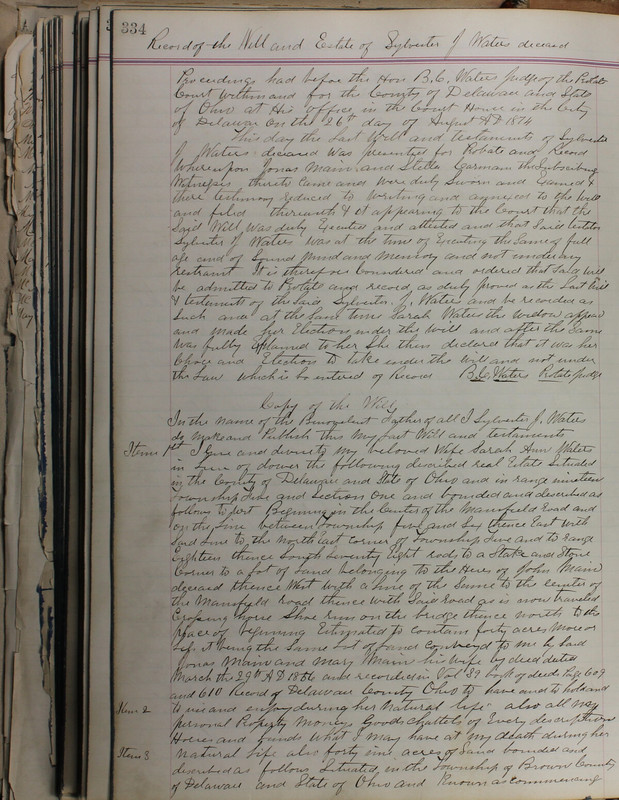 334
Record of the Will and Estate of Sylvester J. Waters deceased
Proceedings had before the Hon. B.C. Waters Judge of the Probate
Court within and for the County of Delaware and State
of Ohio at His office in the Court House in the City
of Delaware on the 26th day of August AD 1874
This day the Last Will and testaments of Sylvester
J Waters deceased was presented for Probate and Record
Whereupon Jonas Main and Stella Carmean the Subscribing
Witnesses thereto Came and were duly Sworn and Examed &
there testimony reduced to writing and annexed to the will
and filed therewith & it appearing to the Court that the
Said Will Was duly Executed and attested and that Said testator
Sylvester J Waters was at the time of Executing the Same of full
age and of Sound Mind and Memory and not under any
restraint It is therefore Considered and ordered that Said Will
be admitted to Probate and record as duly proved as the Last Will
& testament of the said Sylvester J. Waters and be recorded as
Such and at the Same time Sarah Waters the widow appear
and made her Election under the will and after the Same
was fully Explained to her She then declared that it was her
Choice and Election to take under the will and not under
the Law which is to be entered of Record B.C. Waters Probate Judge
Copy of the Will
In the name of the Benevolent Father of all I Sylvester J. Waters
do Make and Publish this My Last Will and testaments
Item 1st I Give and devise to My beloved Wife Sarah Ann Waters
in Lieu of dower the following described real Estate Situated
in the County of Delaware and State of Ohio and in range nineteen
Township five and Section One and bounded and described as
follows to wit Begining in the Center of the Mansfield Road and
on the Line between Township five and Six thence East with
Said Line to the North East corner of Township five and to range
Eighteen thence South Seventy Eight rods to a Stake and Stone
Corner to a lot of Land belonging to the Heirs of John Main
deceased thence West with a Line of the Same to the Center of
the Mansfield Road thence with Said road as is now traveled
Crossing Horse Shoe run on the bridge thence north to the
place of begining Estimated to contain forty acres More or
Less it being the Same Lot of Land conveyed to me by Said
Jonas Main and Mary Main his Wife by deed dated
March the 29th AD 1856 and recorded in Vol 39 book of deeds Page 609
and 610 Record of Delaware County Ohio to have and to hold and
Item 2 to use and enjoy during her Natural life also all My
personal Property Money Goods Chattels of Every description
Horses and funds What I May have at My death during her
Item 3 Natural Life also forty nine acres of Land bounded and
described as follows Situated in the Township of Brown County
of Delaware and State of Ohio and Known as commencing